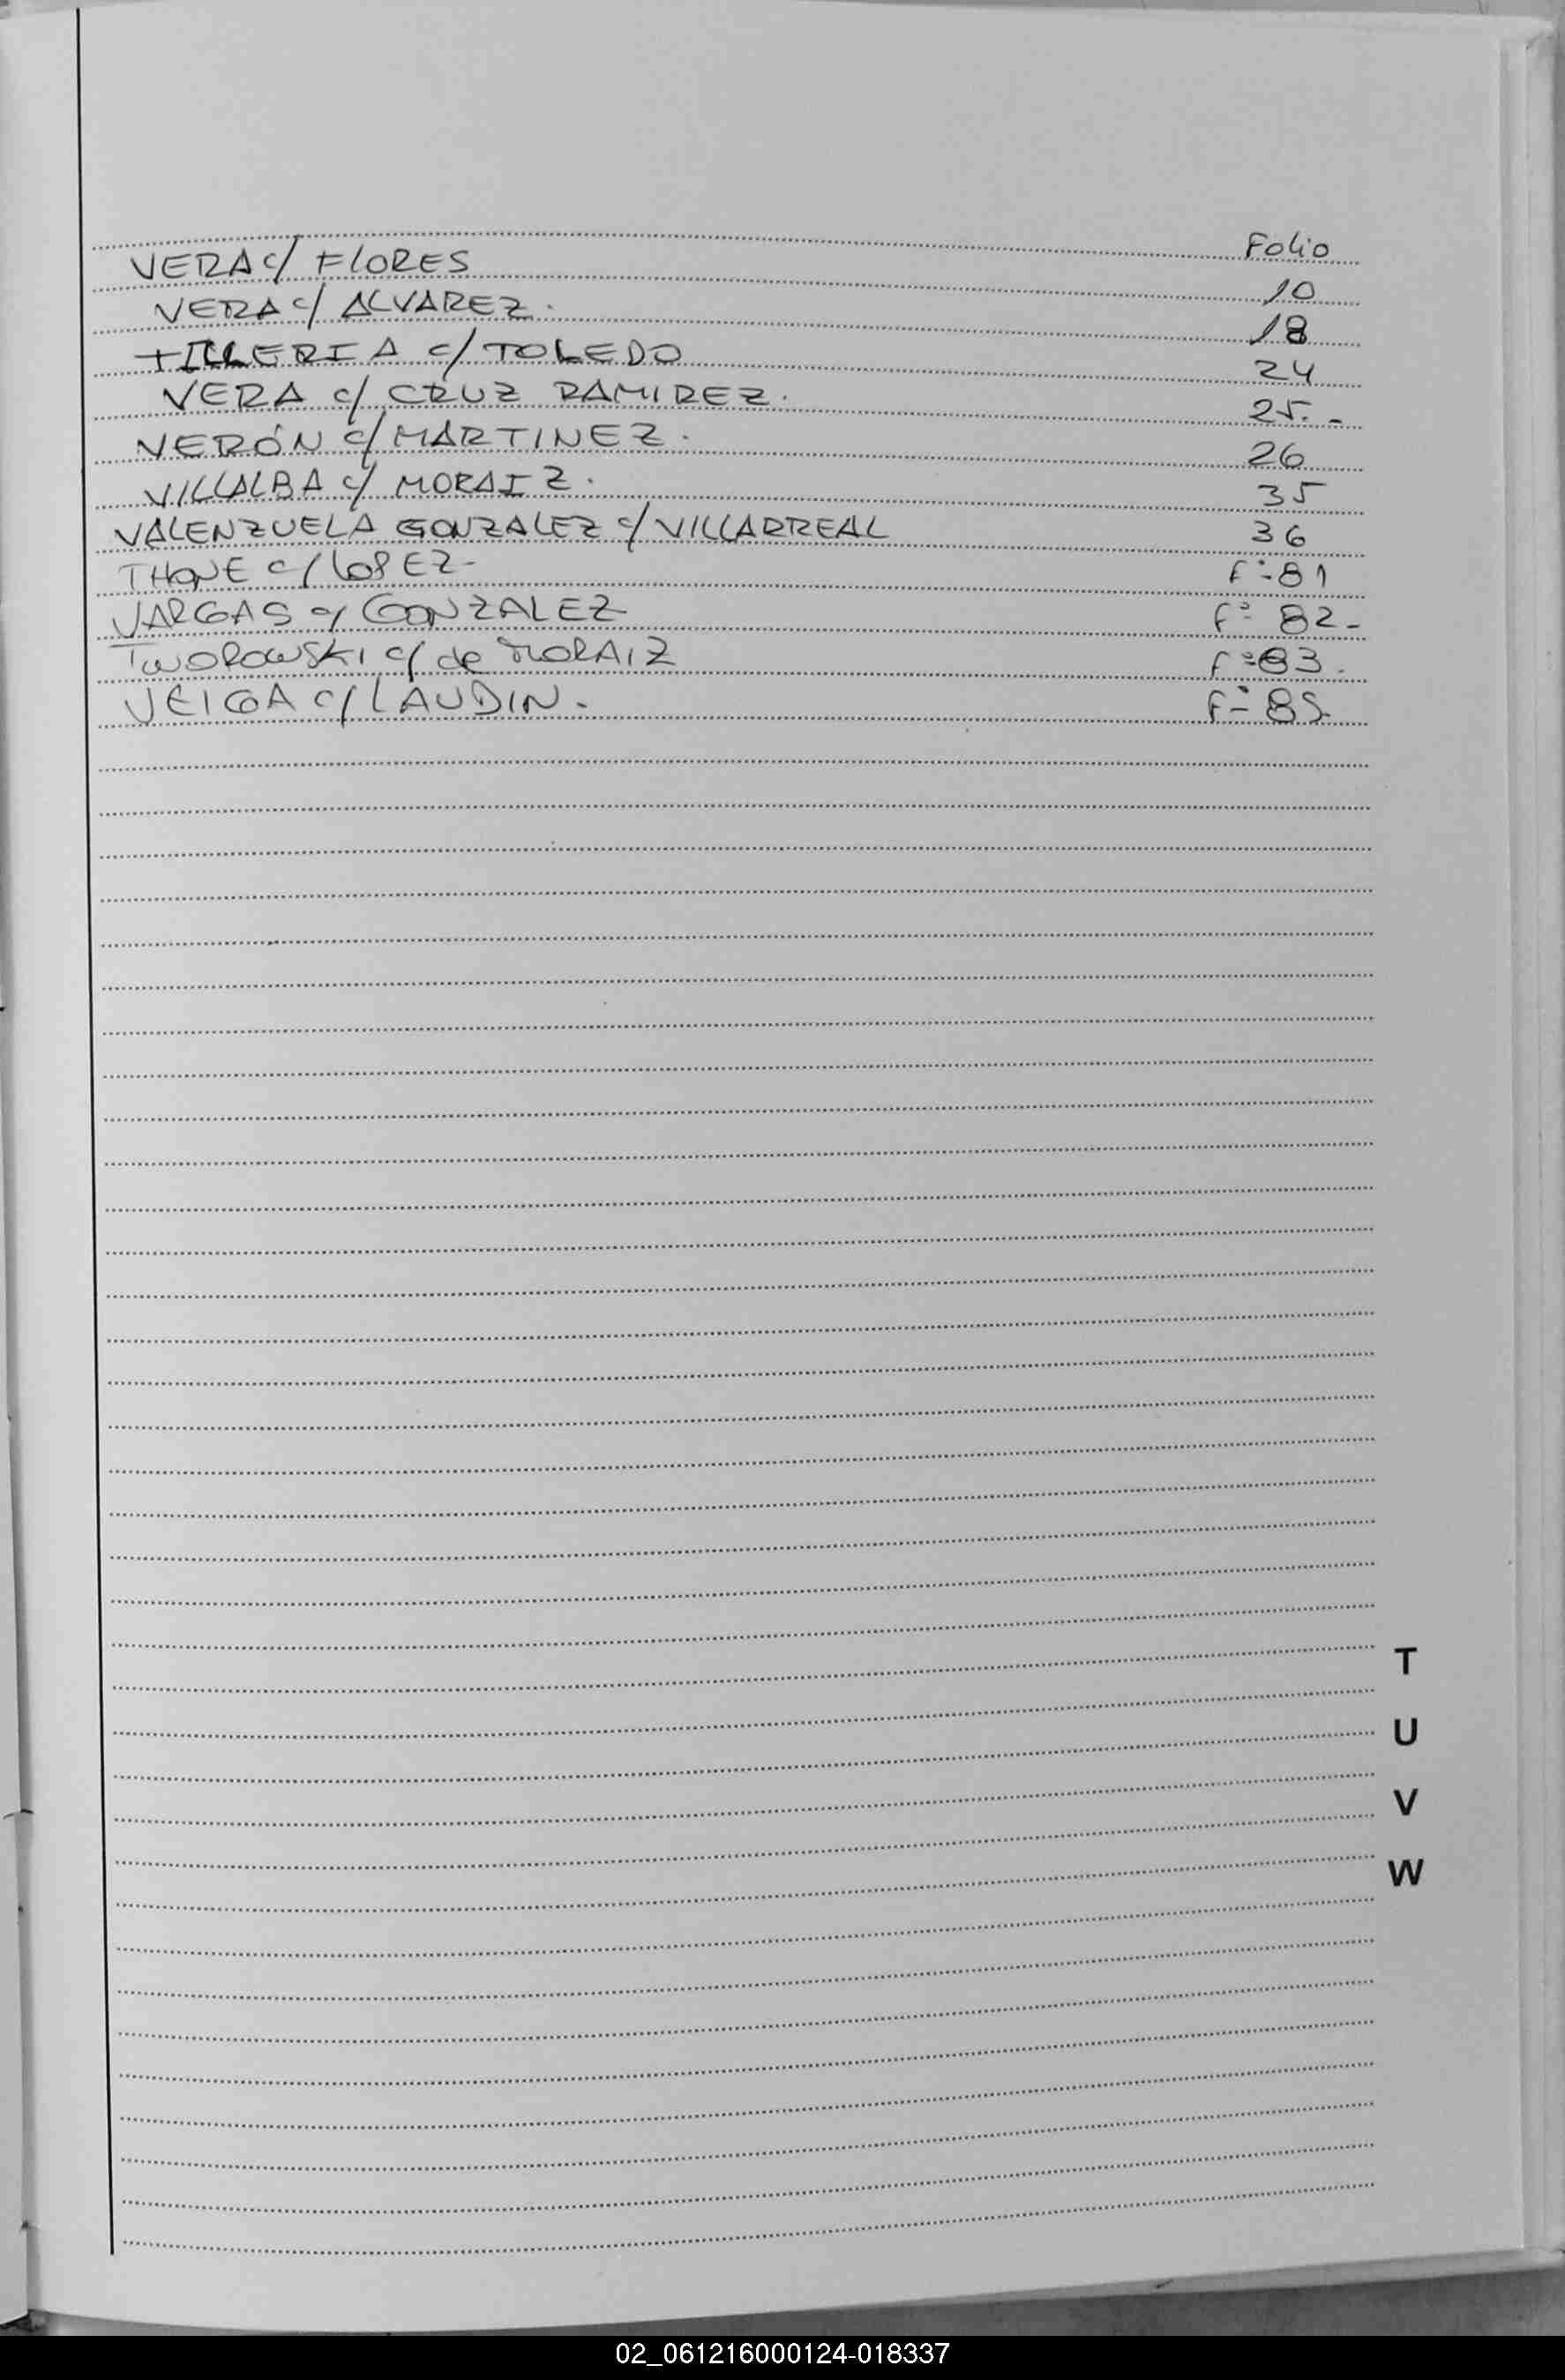 Folio
VERA c/ FLORES 10
VERA c/ ALVAREZ. 18
TILLERIA c/ TOLEDO 24
VERA c/ CRUZ RAMIREZ. 25.-
VERÓN c/ MARTINEZ. 26
VILLALBA c/ MORAIZ. 35
VALENZUELA GONZALEZ c/ VILLARREAL 36
THONE c/ LOPEZ- Fº-81
VARGAS c/ GONZALEZ Fº 82-
TWOROWSKI c/ de MORAIZ Fº 83.
VEIGA c/ LAUDIN. Fº 85.
T
U
V
W
02_061216000124-018337